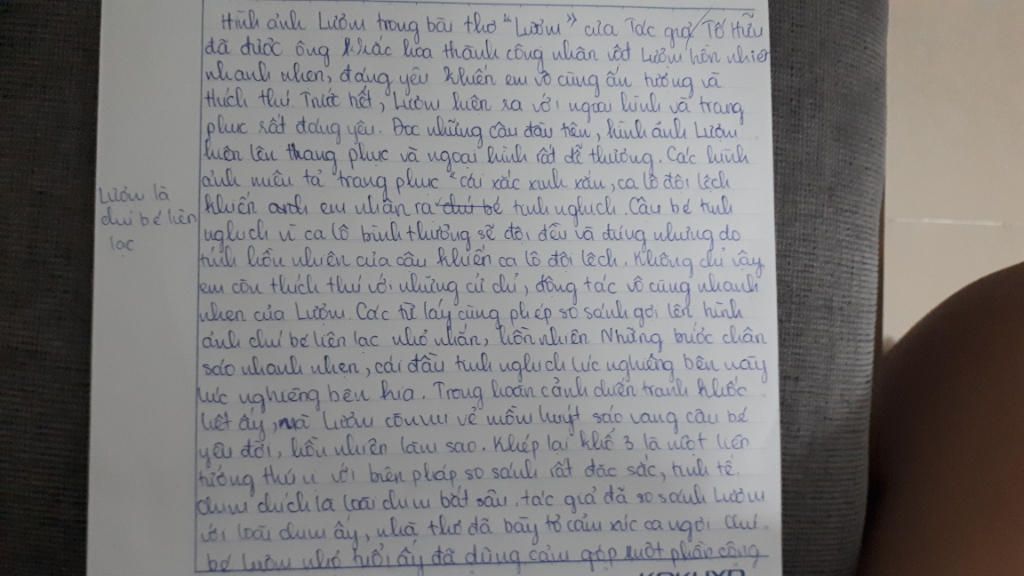 Hình ảnh Lượm trong bài thơ "Lượm" của Tác giả Tố Hữu
đã được ông khắc họa thành công nhân vật Lượm hồn nhiên
nhanh nhẹn, đáng yêu khiến em vô cùng ấn tượng và
thích thú Trước hết, Lượm hiện ra với ngoại hình và trang
phục rất đáng yêu. Đọc những câu đầu tiên, hình ảnh Lượm
hiện lên thang phục và ngoại hình rất dễ thương. Các hình
ảnh miêu tả trang phục "cái xắc xinh xắn, ca lô đội lệch
khiến em nhận ra chú bé tinh nghịch. Cậu bé tinh
nghịch vì ca lô bình thường sẽ đội đều và đúng nhưng do
tính hồn nhiên của cậu khiến ca lô đội lệch. Không chỉ vậy
em còn thích thú với những cử chỉ, động tác vô cùng nhanh
nhẹn của Lượm. Các từ láy cùng phép so sánh gợi lên hình
ảnh chú bé liên lạc nhỏ nhắn, hồn nhiên Những bước chân
sáo nhanh nhẹn, cái đầu tinh nghịch lúc nghiêng bên này
lúc nghiêng bên kia. Trong hoàn cảnh chiến tranh khốc
liệt ấy, mà Lượm còn vui vẻ mồm huýt sáo vang cậu bé
yêu đời, hồn nhiên làm sao. Khép lại khổ 3 là một liên
tưởng thú vị với biện pháp so sánh rất đặc sắc, tinh tế
chim chích là loài chim bắt sâu. tác giả đã so sánh Lượm
với loài chim ấy, nhà thơ đã bày tỏ cảm xúc ca ngợi chú
bé Lượm nhỏ tuổi ấy đã dũng cảm góp một phần công
Lượm là
chú bé liên
lạc
KOKUYO